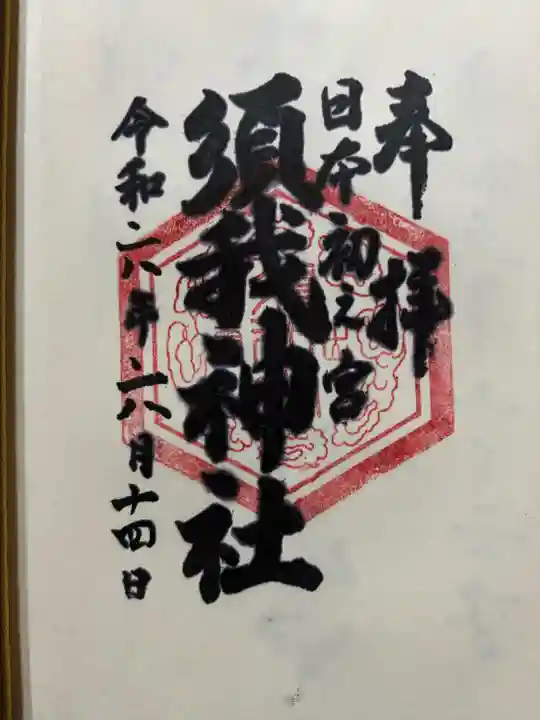 奉拝
日本初之宮
須我神社
令和六年六月十四日